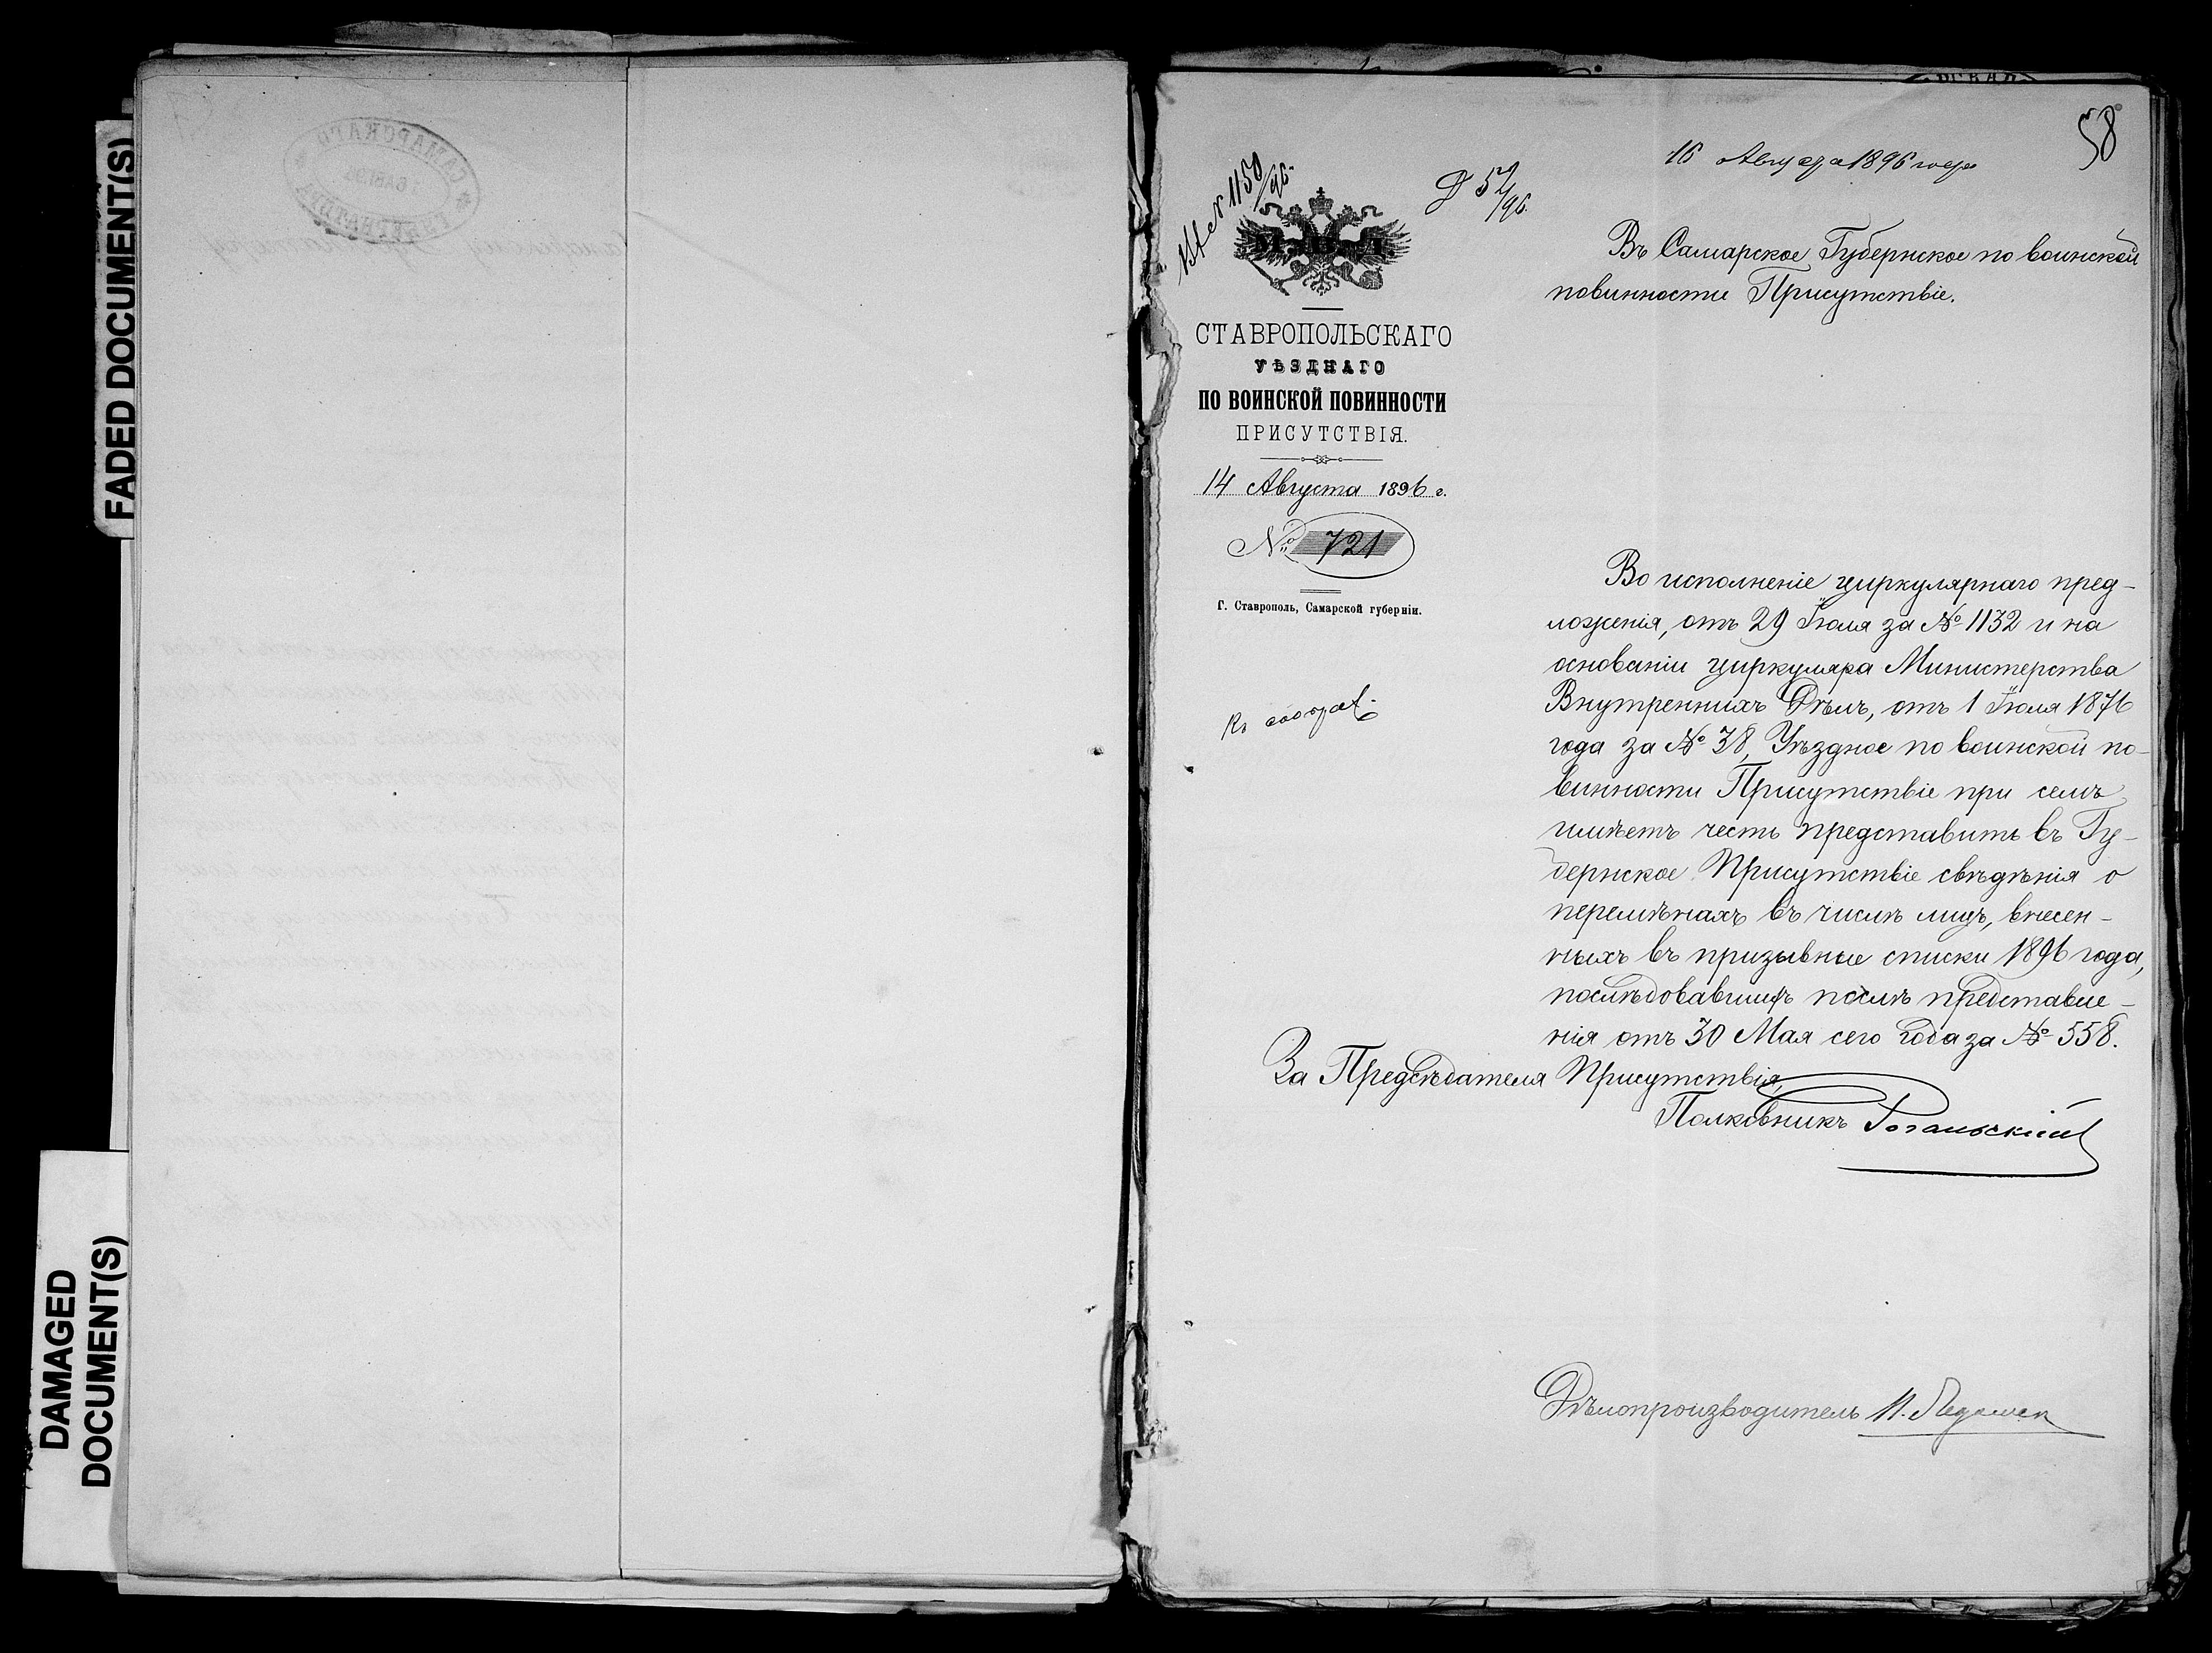 FADED DOCUMENT(S)
DAMAGED
DOCUMENT(S)
58
16 Августа 1896 года
Вх № 1150/96.
М.В.Д.
СТАВРОПОЛЬСКАГО
УѢЗДНАГО
ПО ВОИНСКОЙ ПОВИННОСТИ
ПРИСУТСТВІЯ.
14 Августа 1896 г.
№ 721
Г. Ставрополь, Самарской губерніи.
Въ Самарское Губернское по воинской
повинности Присутствіе.
Во исполненіе циркулярнаго пред-
ложенія, отъ 29 Іюля за № 1132 и на
основаніи циркуляра Министерства
Внутреннихъ Дѣлъ, отъ 1 Іюля 1876
года за № 38, Уѣздное по воинской по-
винности Присутствіе при семъ
имѣетъ честь представить въ Гу-
бернское Присутствіе свѣдѣнія о
перемѣнахъ въ числѣ лицъ, внесен-
ныхъ въ призывные списки 1896 года,
послѣдовавшихъ послѣ представле-
нія отъ 30 Мая сего года за № 558.
За Предсѣдателя Присутствія,
Полковникъ
Дѣлопроизводитель